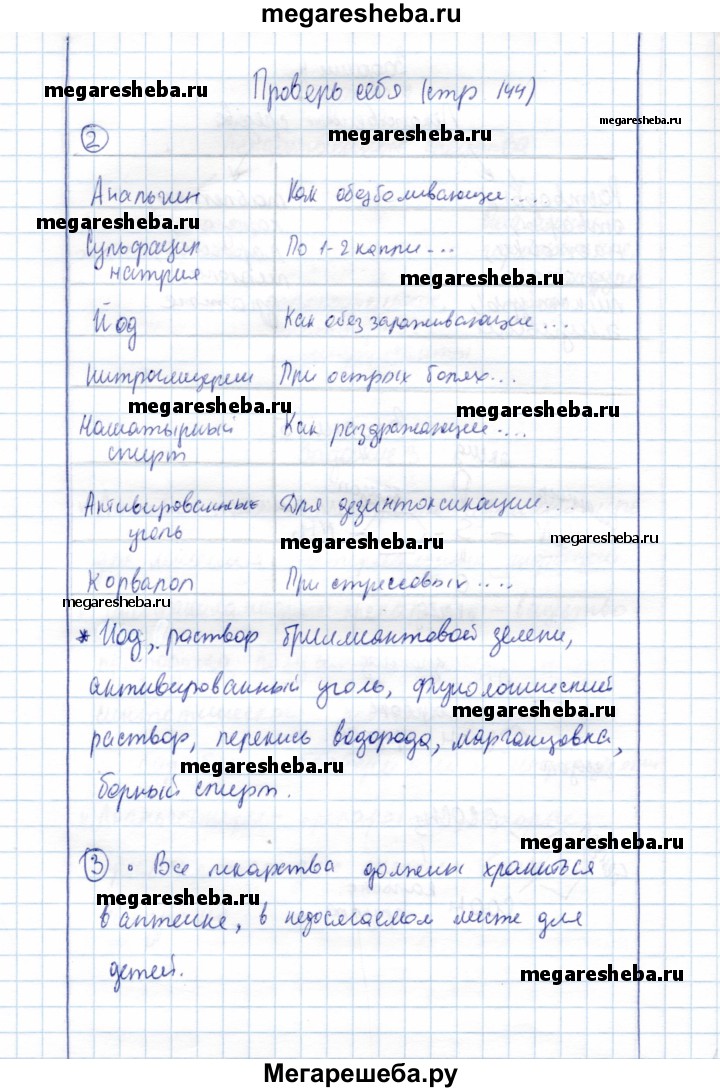 megaresheba.ru
megaresheba.ru Проверь себя (стр 144)
megaresheba.ru
2 megaresheba.ru
Анальгин Как обезболивающие....
megaresheba.ru
Сульфацил По 1-2 капли...
натрия megaresheba.ru
Йод Как обеззараживающие...
Нитроглицерин При острых болях...
megaresheba.ru megaresheba.ru
Нашатырный Как раздражающие....
спирт
Активированные Для дезинтоксикации...
уголь megaresheba.ru megaresheba.ru
Корвалол При стрессовых....
megaresheba.ru
* Йод, раствор бриллиантовой зелени,
активированный уголь, физиологический
megaresheba.ru
раствор, перекись водорода, марганцовка,
megaresheba.ru
борный спирт.
megaresheba.ru
3 • Все лекарства должны храниться
megaresheba.ru
в аптечке, в недосягаемом месте для
детей.
megaresheba.ru
Мегарешеба.ру